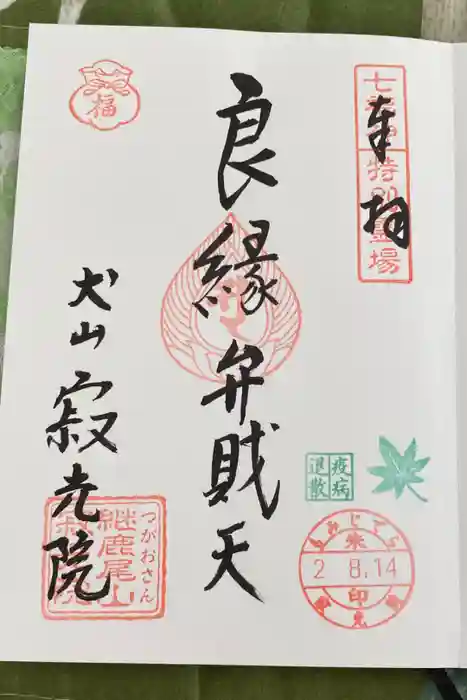 七福神特別霊場
奉拝
良縁弁戝天
福
犬山
寂光院
継鹿尾山
つがおさん
疫病
退散
もみじでら
朱
2 8.14
印